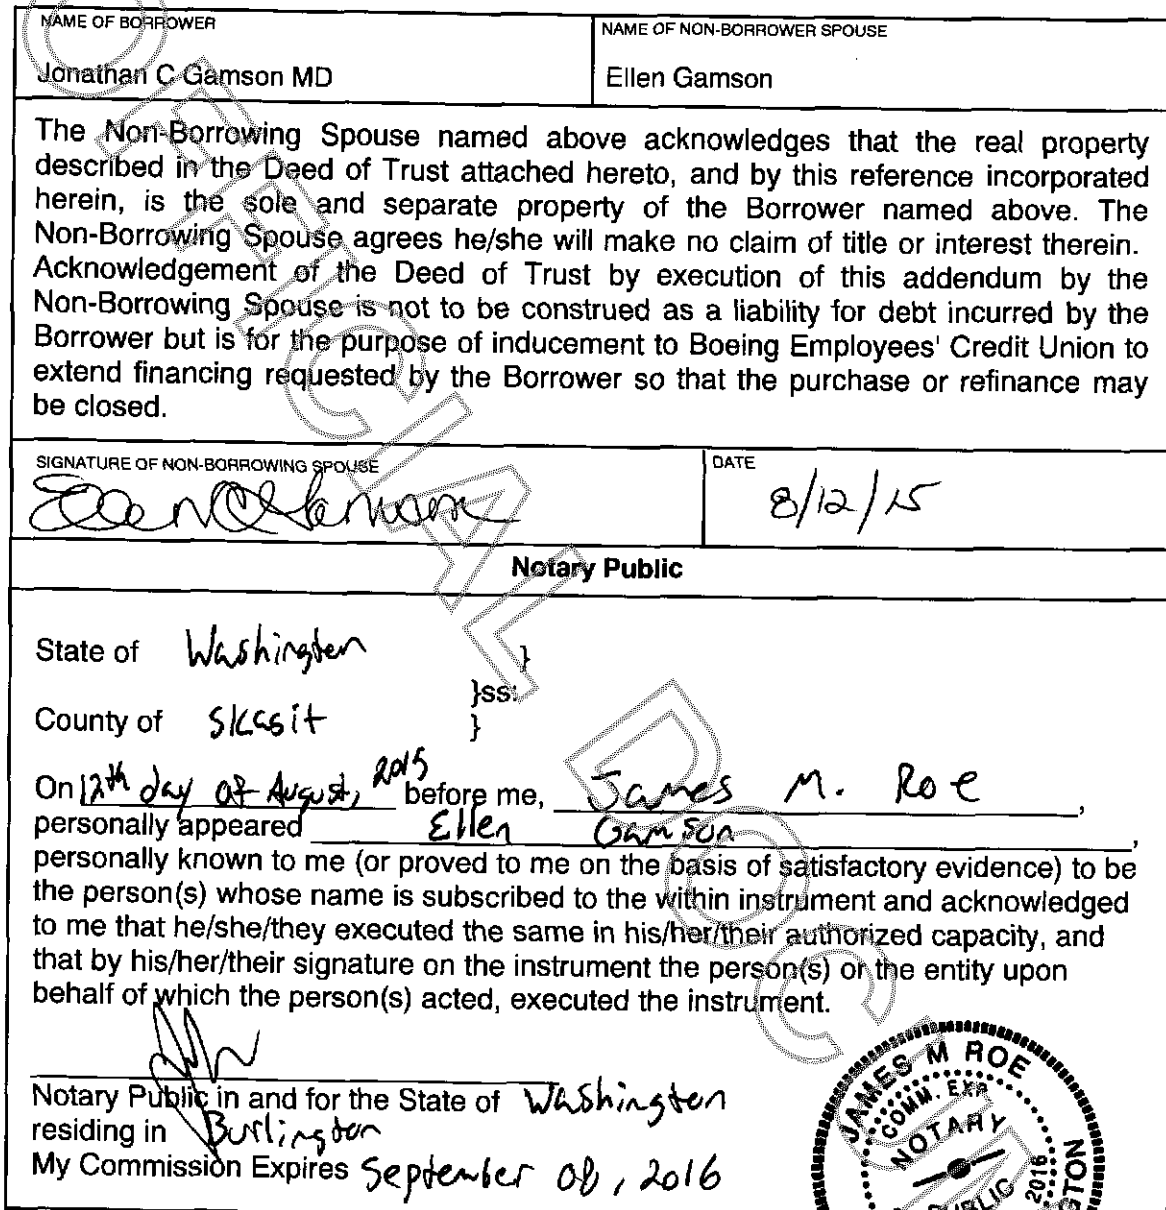 NAME OF BORROWER
Jonathan C Gamson MD
NAME OF NON-BORROWER SPOUSE
Ellen Gamson
The Non-Borrowing Spouse named above acknowledges that the real property
described in the Deed of Trust attached hereto, and by this reference incorporated
herein, is the sole and separate property of the Borrower named above. The
Non-Borrowing Spouse agrees he/she will make no claim of title or interest therein.
Acknowledgement of the Deed of Trust by execution of this addendum by the
Non-Borrowing Spouse is not to be construed as a liability for debt incurred by the
Borrower but is for the purpose of inducement to Boeing Employees' Credit Union to
extend financing requested by the Borrower so that the purchase or refinance may
be closed.
SIGNATURE OF NON-BORROWING SPOUSE
Ellen Gamson
DATE
8/12/15
Notary Public
State of Washington }
}ss:
County of Skagit }
On 12th day of August, 2015 before me, James M. Roe,
personally appeared Ellen Gamson,
personally known to me (or proved to me on the basis of satisfactory evidence) to be
the person(s) whose name is subscribed to the within instrument and acknowledged
to me that he/she/they executed the same in his/her/their authorized capacity, and
that by his/her/their signature on the instrument the person(s) or the entity upon
behalf of which the person(s) acted, executed the instrument.
Notary Public in and for the State of Washington
residing in Burlington
My Commission Expires September 08, 2016
JAMES M ROE
COMM. EXP.
NOTARY
PUBLIC
2016
GTON
UNOFFICIAL DOC